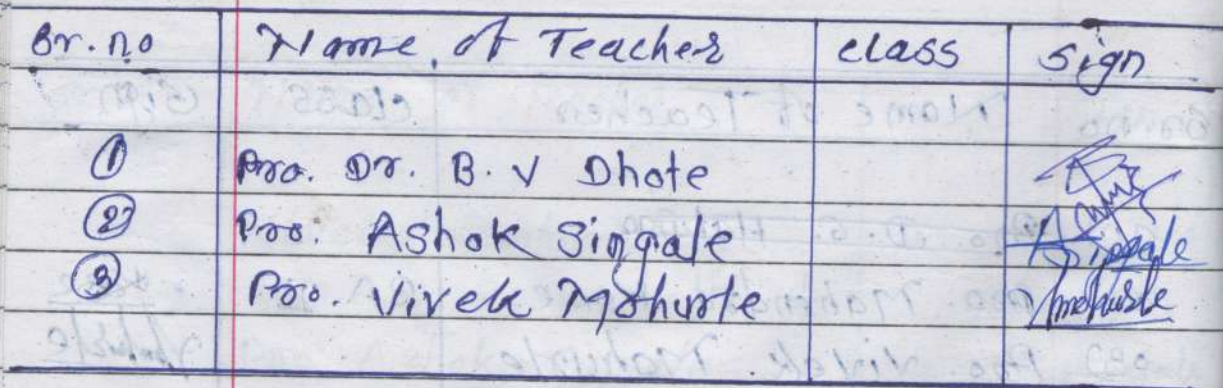 Sr.no Name of Teacher class sign
① Pro. Dr. B. V Dhote
② Pro. Ashok Singale Singale
③ Pro. Vivek Mohurle Mohurle